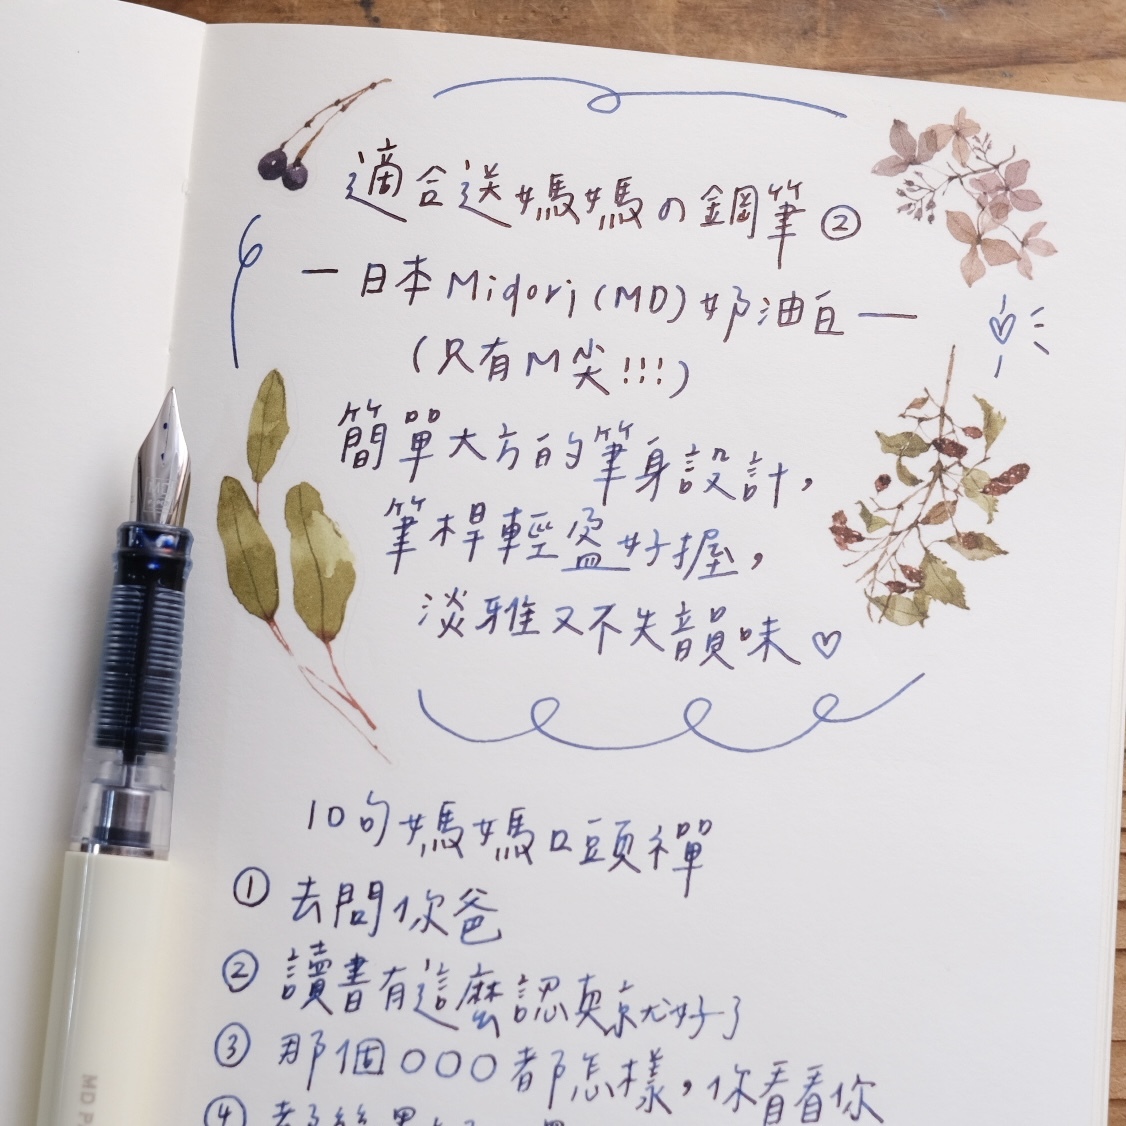 適合送媽媽の鋼筆②
一日本Midori(MD)奶油白一
(只有M尖!!!)
簡單大方的筆身設計，
筆桿輕盈好握，
淡雅又不失韻味♡
10句媽媽口頭禪
① 去問你爸
② 讀書有這麼認真就好了
③ 那個○○○都怎樣，你看看你
④
MD P